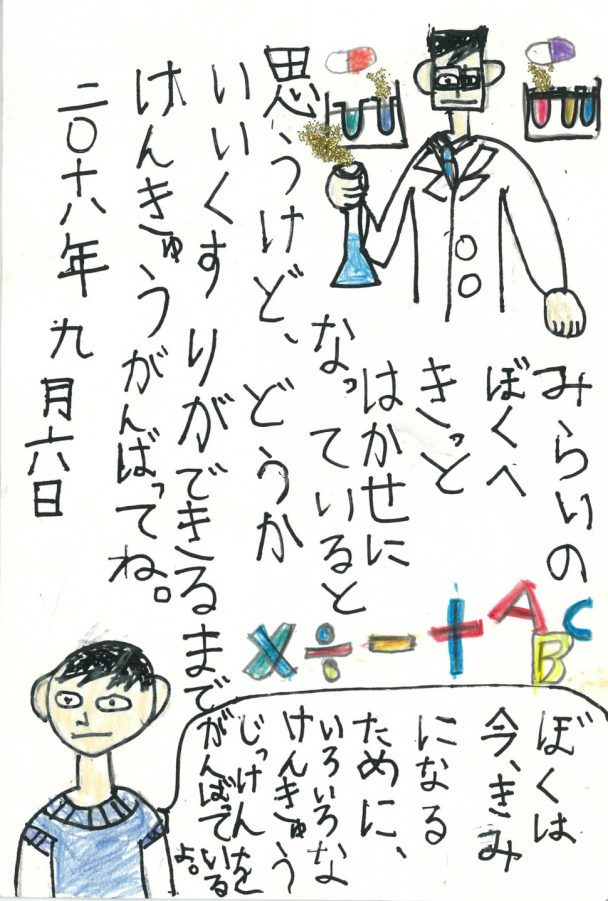 みらいの
ぼくへ
きっと
はかせに
なっていると
思うけど、どうか
いいくすりができるまで
けんきゅうがんばってね。
二〇十八年九月六日
× ÷ − + A B C
ぼくは
今、きみ
になる
ために、
いろいろな
けんきゅう
じっけんを
がんばっているよ。